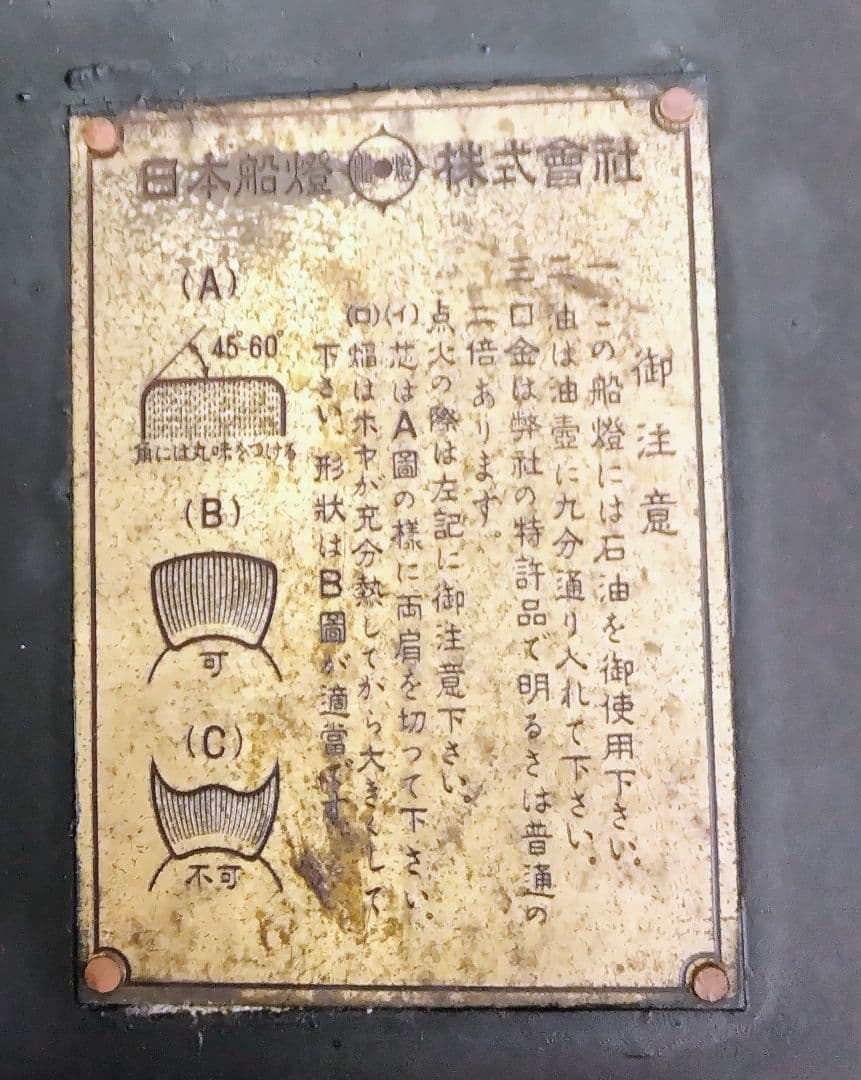 日本船燈 船燈 株式會社
御注意
一 この船燈には石油を御使用下さい。
二 油は油壺に九分通り入れて下さい。
三 口金は弊社の特許品で明るさは普通の
二倍あります。
点火の際は左記に御注意下さい。
(イ)芯はA圖の様に両肩を切つて下さい。
(ロ)焔はホヤが充分熱してから大きくして
下さい、形狀はB圖が適當です。
(A)
45°-60°
角には丸味をつける
(B)
可
(C)
不可